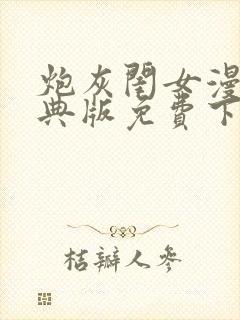 炮灰闺女漫
典版免费下
桔瓣人参